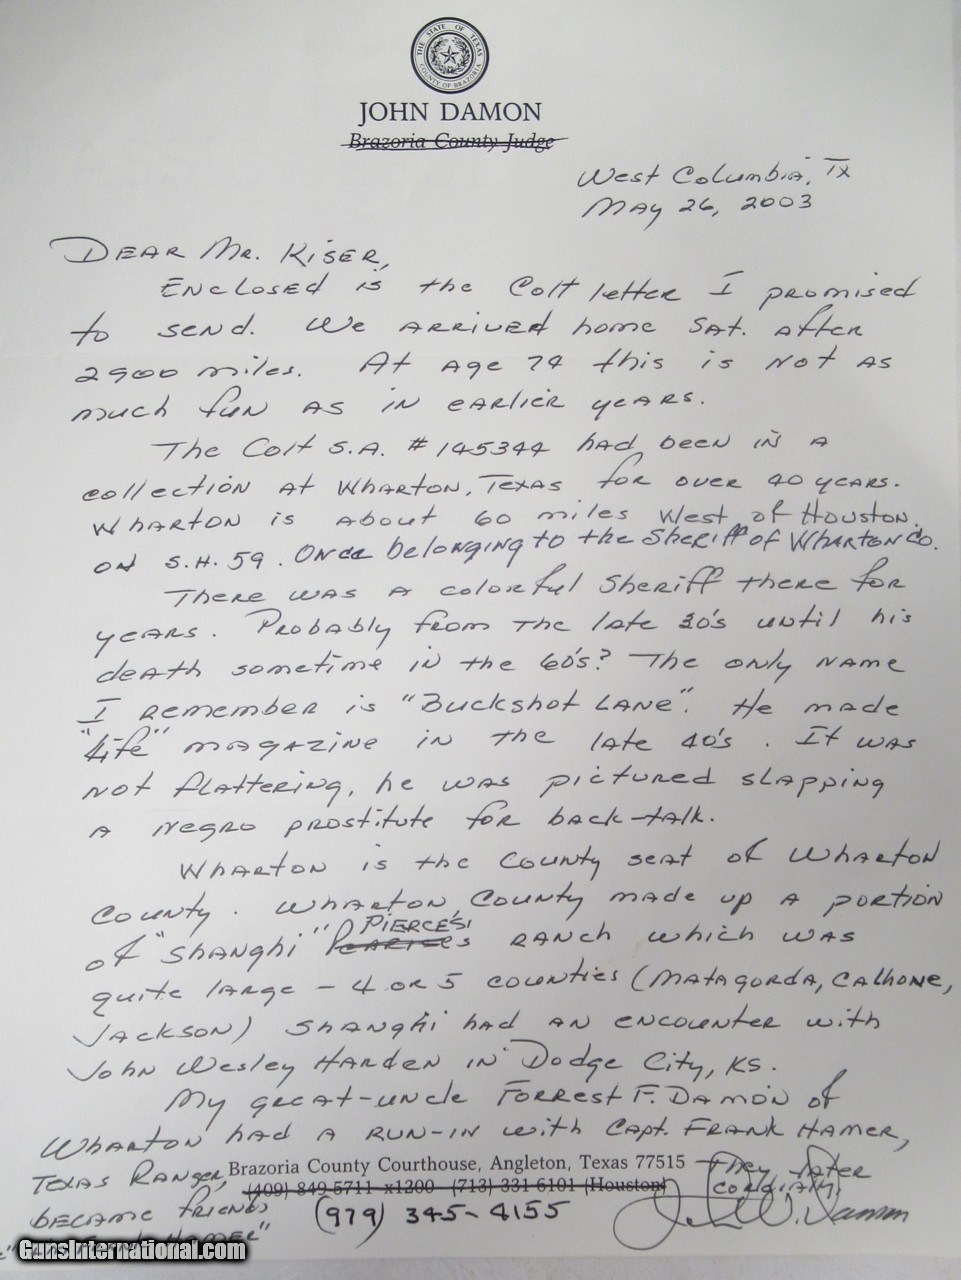 THE STATE OF TEXAS
COUNTY OF BRAZORIA
JOHN DAMON
Brazoria County Judge
West Columbia, TX
May 26, 2003
Dear Mr. Kiser,
Enclosed is the Colt letter I promised
to send. We arrived home Sat. after
2900 miles. At age 74 this is not as
much fun as in earlier years.
The Colt S.A. # 145344 had been in a
collection at Wharton, Texas for over 40 years.
Wharton is about 60 miles West of Houston
on S.H. 59. Once belonging to the Sheriff of Wharton Co.
There was a colorful Sheriff there for
years. Probably from the late 30's until his
death sometime in the 60's? The only name
I remember is "Buckshot Lane". He made
"Life" magazine in the late 40's. It was
not flattering, he was pictured slapping
a negro prostitute for back-talk.
Wharton is the County seat of Wharton
County. Wharton County made up a portion
PIERCE'S
of "Shanghi" ranch which was
quite large - 4 or 5 counties (Matagorda, Calhone,
Jackson) Shanghi had an encounter with
John Wesley Harden in Dodge City, KS.
My great-uncle Forrest F. Damon of
Wharton had a run-in with Capt. Frank Hamer,
Texas Ranger, They later
became friends
Brazoria County Courthouse, Angleton, Texas 77515
(409) 849-5711 x1200 (713) 331-6101 (Houston)
(979) 345-4155
Cordially,
John W. Damon
Hamer"
GunsInternational.com